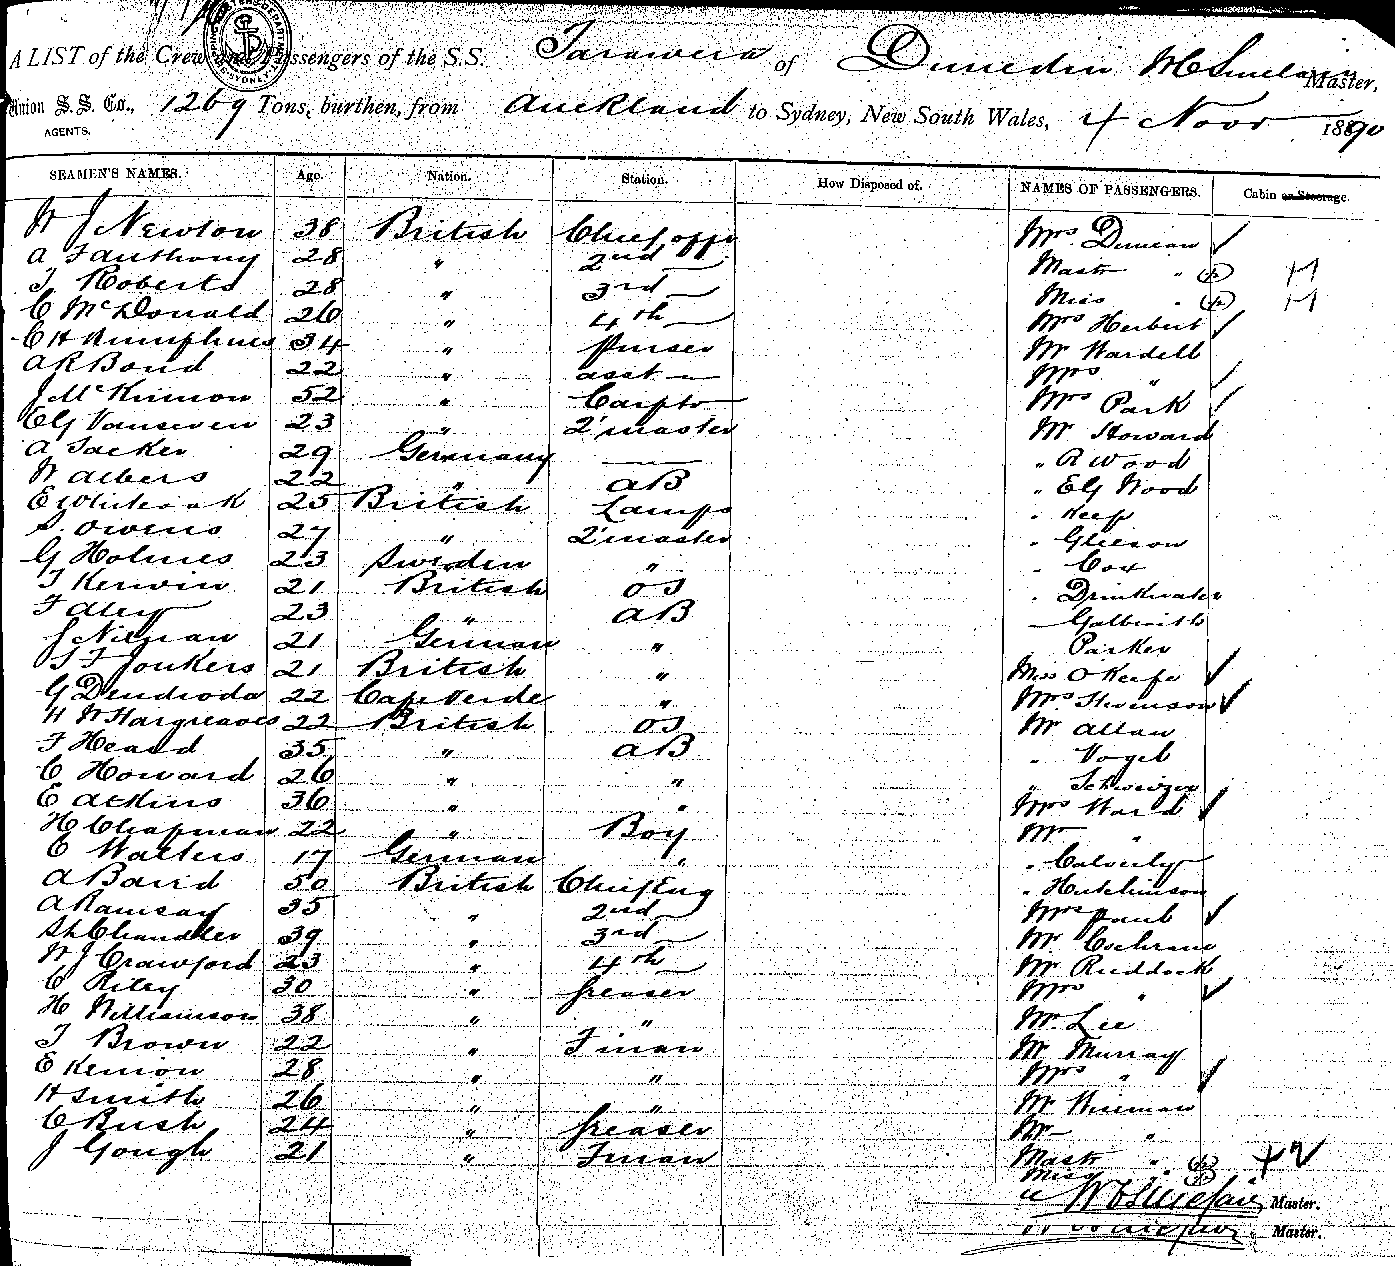 A LIST of the Crew and Passengers of the S.S. Tarawera of Dunedin Master,
Union S.S. Co., 1269 Tons, burthen, from Auckland to Sydney, New South Wales, 4 Novr 1890
AGENTS.
SEAMEN'S NAMES. Age. Nation. Station. How Disposed of. NAMES OF PASSENGERS. Cabin or Steerage.
W J Newton 38 British Chief offr Mrs Duncan
A F Anthony 28 " 2nd Mastr "
T Roberts 28 " 3rd Miss "
C McDonald 26 " 4th Mrs Herbert
C H Humphries 34 " Purser Mr Wardell
A R Bond 22 " asst Mrs "
J McKinnon 52 " Carptr Mrs Park
E G Vanseven 23 " 2'master Mr Howard
A Tacker 29 Germany " R Wood
W Albers 22 " AB " E G Wood
E 25 British Lamps " Keep
S. Owens 27 " 2'master " Gleeson
G Holmes 23 Sweden " " Cox
T Kerwin 21 British OS " Drinkwater
F Aley 23 " AB Galbraith
J 21 German " Parker
21 British " Miss O'Keefe
G 22 Cape Verde " Mrs Stevenson
H W Hargreaves 22 British OS Mr Allan
F Heard 35 " AB " Vogel
C Howard 26 " " "
E Atkins 36 " " Mrs Ward
H Chapman 22 " Boy Mr "
E Walters 17 German " "
A Baird 50 British Chief Eng " Hutchinson
A Ramsay 35 " 2nd Mrs
Chandler 39 " 3rd Mr Cochrane
W J Crawford 23 " 4th Mr Ruddock
C Riley 30 " Greaser Mrs "
H Williamson 38 " " Mr Lee
T Brown 22 " F'man Mr Murray
E Kenion 28 " " Mrs "
H Smith 26 " " Mr
C Bush 24 " Greaser Mr "
J Gough 21 " F'man Mastr "
Miss "
Master.
Master.